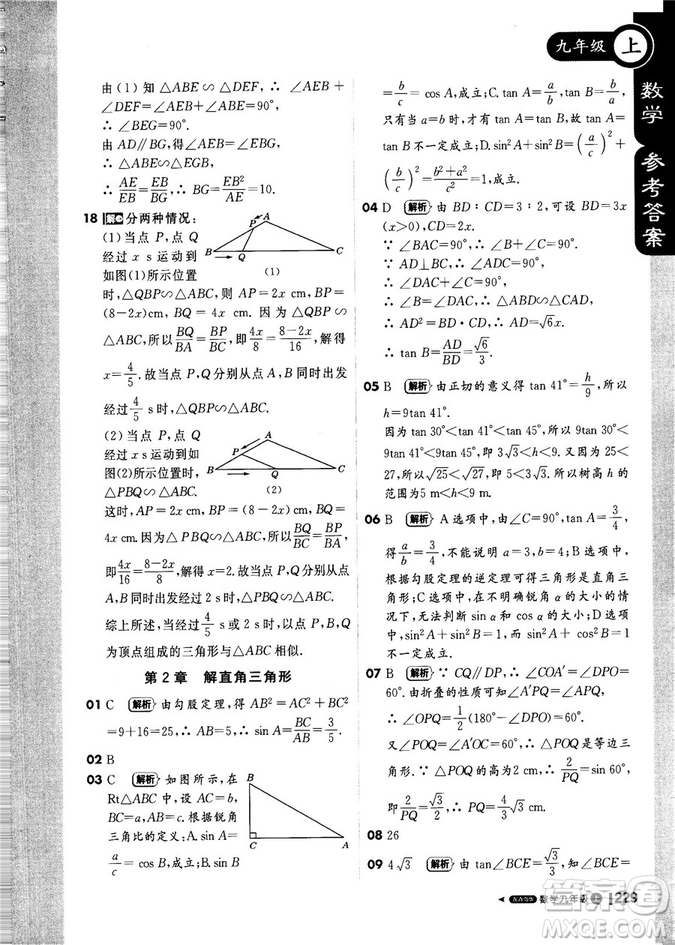 九年级 上
数学 参考答案
由(1)知 △ABE∽△DEF,∴ ∠ABE+
∠DEF=∠ABE+∠AEB=90°,
∴ ∠BEG=90°.
由AD∥BG,得∠AEB=∠EBG,
∴ △ABE∽△EGB,
∴ AE/EB=EB/BG,∴ BG=EB²/AE=10.
18 分两种情况:
(1)当点P,点Q
经过x s运动到
如图(1)所示位置
时,△QBP∽△ABC,则AP=2x cm,BP=
(8-2x)cm,BQ=4x cm.因为△QBP∽
△ABC,所以BQ/BA=BP/BC,即4x/8=(8-2x)/16,解得
x=4/5.故当点P,Q分别从点A,B同时出发
经过4/5 s时,△QBP∽△ABC.
(2)当点P,点Q
经过x s运动到如
图(2)所示位置时,
△PBQ∽△ABC,
则AP=2x cm,BP=(8-2x)cm,BQ=
4x cm.因为△PBQ∽△ABC,所以BQ/BC=BP/BA,
即4x/16=(8-2x)/8,解得x=2.故当点P,Q分别
从点A,B同时出发经过2 s时,△PBQ∽
△ABC.
综上所述,经过4/5 s或2 s时,以点Q,B,P
为顶点组成的三角形与△ABC相似.
A
P
B
Q
C
(1)
A
P
B
Q
C
(2)
第2章 解直角三角形
01 C 解析 由勾股定理,得AB²=AC²+BC²
=9+16=25,∴ AB=5,∴ sin A=BC/AB=3/5.
02 B
03 C 解析 如图所示,在
Rt△ABC中,根据锐角
三角比的定义:A.sin A=
a/c=cos B,成立;B.sin B
B
C
A
=b/c=cos A,成立;C.tan A=a/b,tan B=b/a,
只有当a=b时,tan A=tan B,故tan A=
tan B不一定成立;D.sin²A+sin²B=(a/c)²+
(b/c)²=(b²+a²)/c²=1,成立.
04 D 解析 由BD∶CD=3∶2,可设BD=3x
(x>0),CD=2x.
∵ ∠BAC=90°,∴ ∠B+∠C=90°.
∵ AD⊥BC,∴ ∠DAC+∠C=90°,
∴ ∠B=∠DAC,∴ △ABD∽△CAD,
∴ AD²=BD·CD,∴ AD=√6x.
∴ tan B=AD/BD=√6/3.
05 B 解析 由正切的意义得tan 41°=h/9,所以
h=9tan 41°.
因为tan 30°<tan 41°<tan 45°,所以9tan 30°<
9tan 41°<9tan 45°,即3√3<h<9.又因为25<
27,所以√25<√27,即5<3√3.所以树高h的
范围为5 m<h<9 m.
06 B 解析 A选项中,由∠C=90°,tan A=3/4,
得a/b=3/4,无法说明a=3,b=4;B选项中,
根据勾股定理的逆定理可得三角形是直角三
角形;C选项中,在不明确锐角α,α的大小的情
况下,无法判断sin α和cos α的大小;D选项
中,由于α为锐角,所以0<sin α<1.
07 B 解析 ∵ CQ∥DP,∴ ∠COA′=∠DPA′=
60°.由折叠的性质,可得∠A′PQ=∠APQ,
∴ ∠OPQ=1/2(180°-∠DPO)=60°.
又∠POQ=∠COA′=60°,∴ △OPQ为等边三
角形.∵ CQ的高为2 cm,∴ sin∠POQ=2/PQ,
即2/PQ=√3/2,∴ PQ=4√3/3 cm.
08 26
09 4√3 解析 由tan∠BCE=√3/3,知∠BCE=
数学九年级 上 229